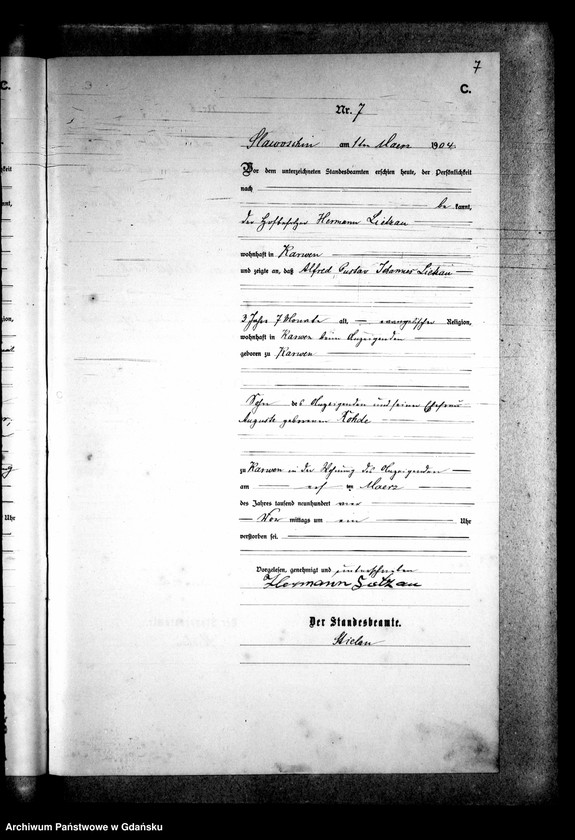 7
C.
Nr. 7
Slawoschin am 1ten Maerz 1904.
Vor dem unterzeichneten Standesbeamten erschien heute, der Persönlichkeit
nach
be kannt,
der Hofbesitzer Hermann
wohnhaft in Karwen
und zeigte an, daß Alfred Gustav Johannes
3 Jahre 7 Monate alt, evangelischer Religion,
wohnhaft in Karwen beim Anzeigenden
geboren zu Karwen
Sohn des Anzeigenden und seiner Ehefrau
Auguste geborenen Rohde
zu Karwen in der Wohnung des Anzeigenden
am ersten Maerz
des Jahres tausend neunhundert vier
Vor mittags um ein Uhr
verstorben sei.
Vorgelesen, genehmigt und unterschrieben
Hermann
Der Standesbeamte.
C.
Uhr
Archiwum Państwowe w Gdańsku